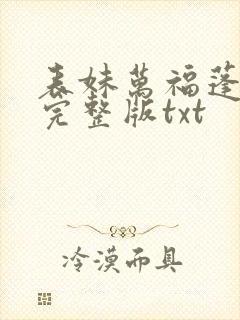 表妹萬福蓬
完整版txt
冷漠而具